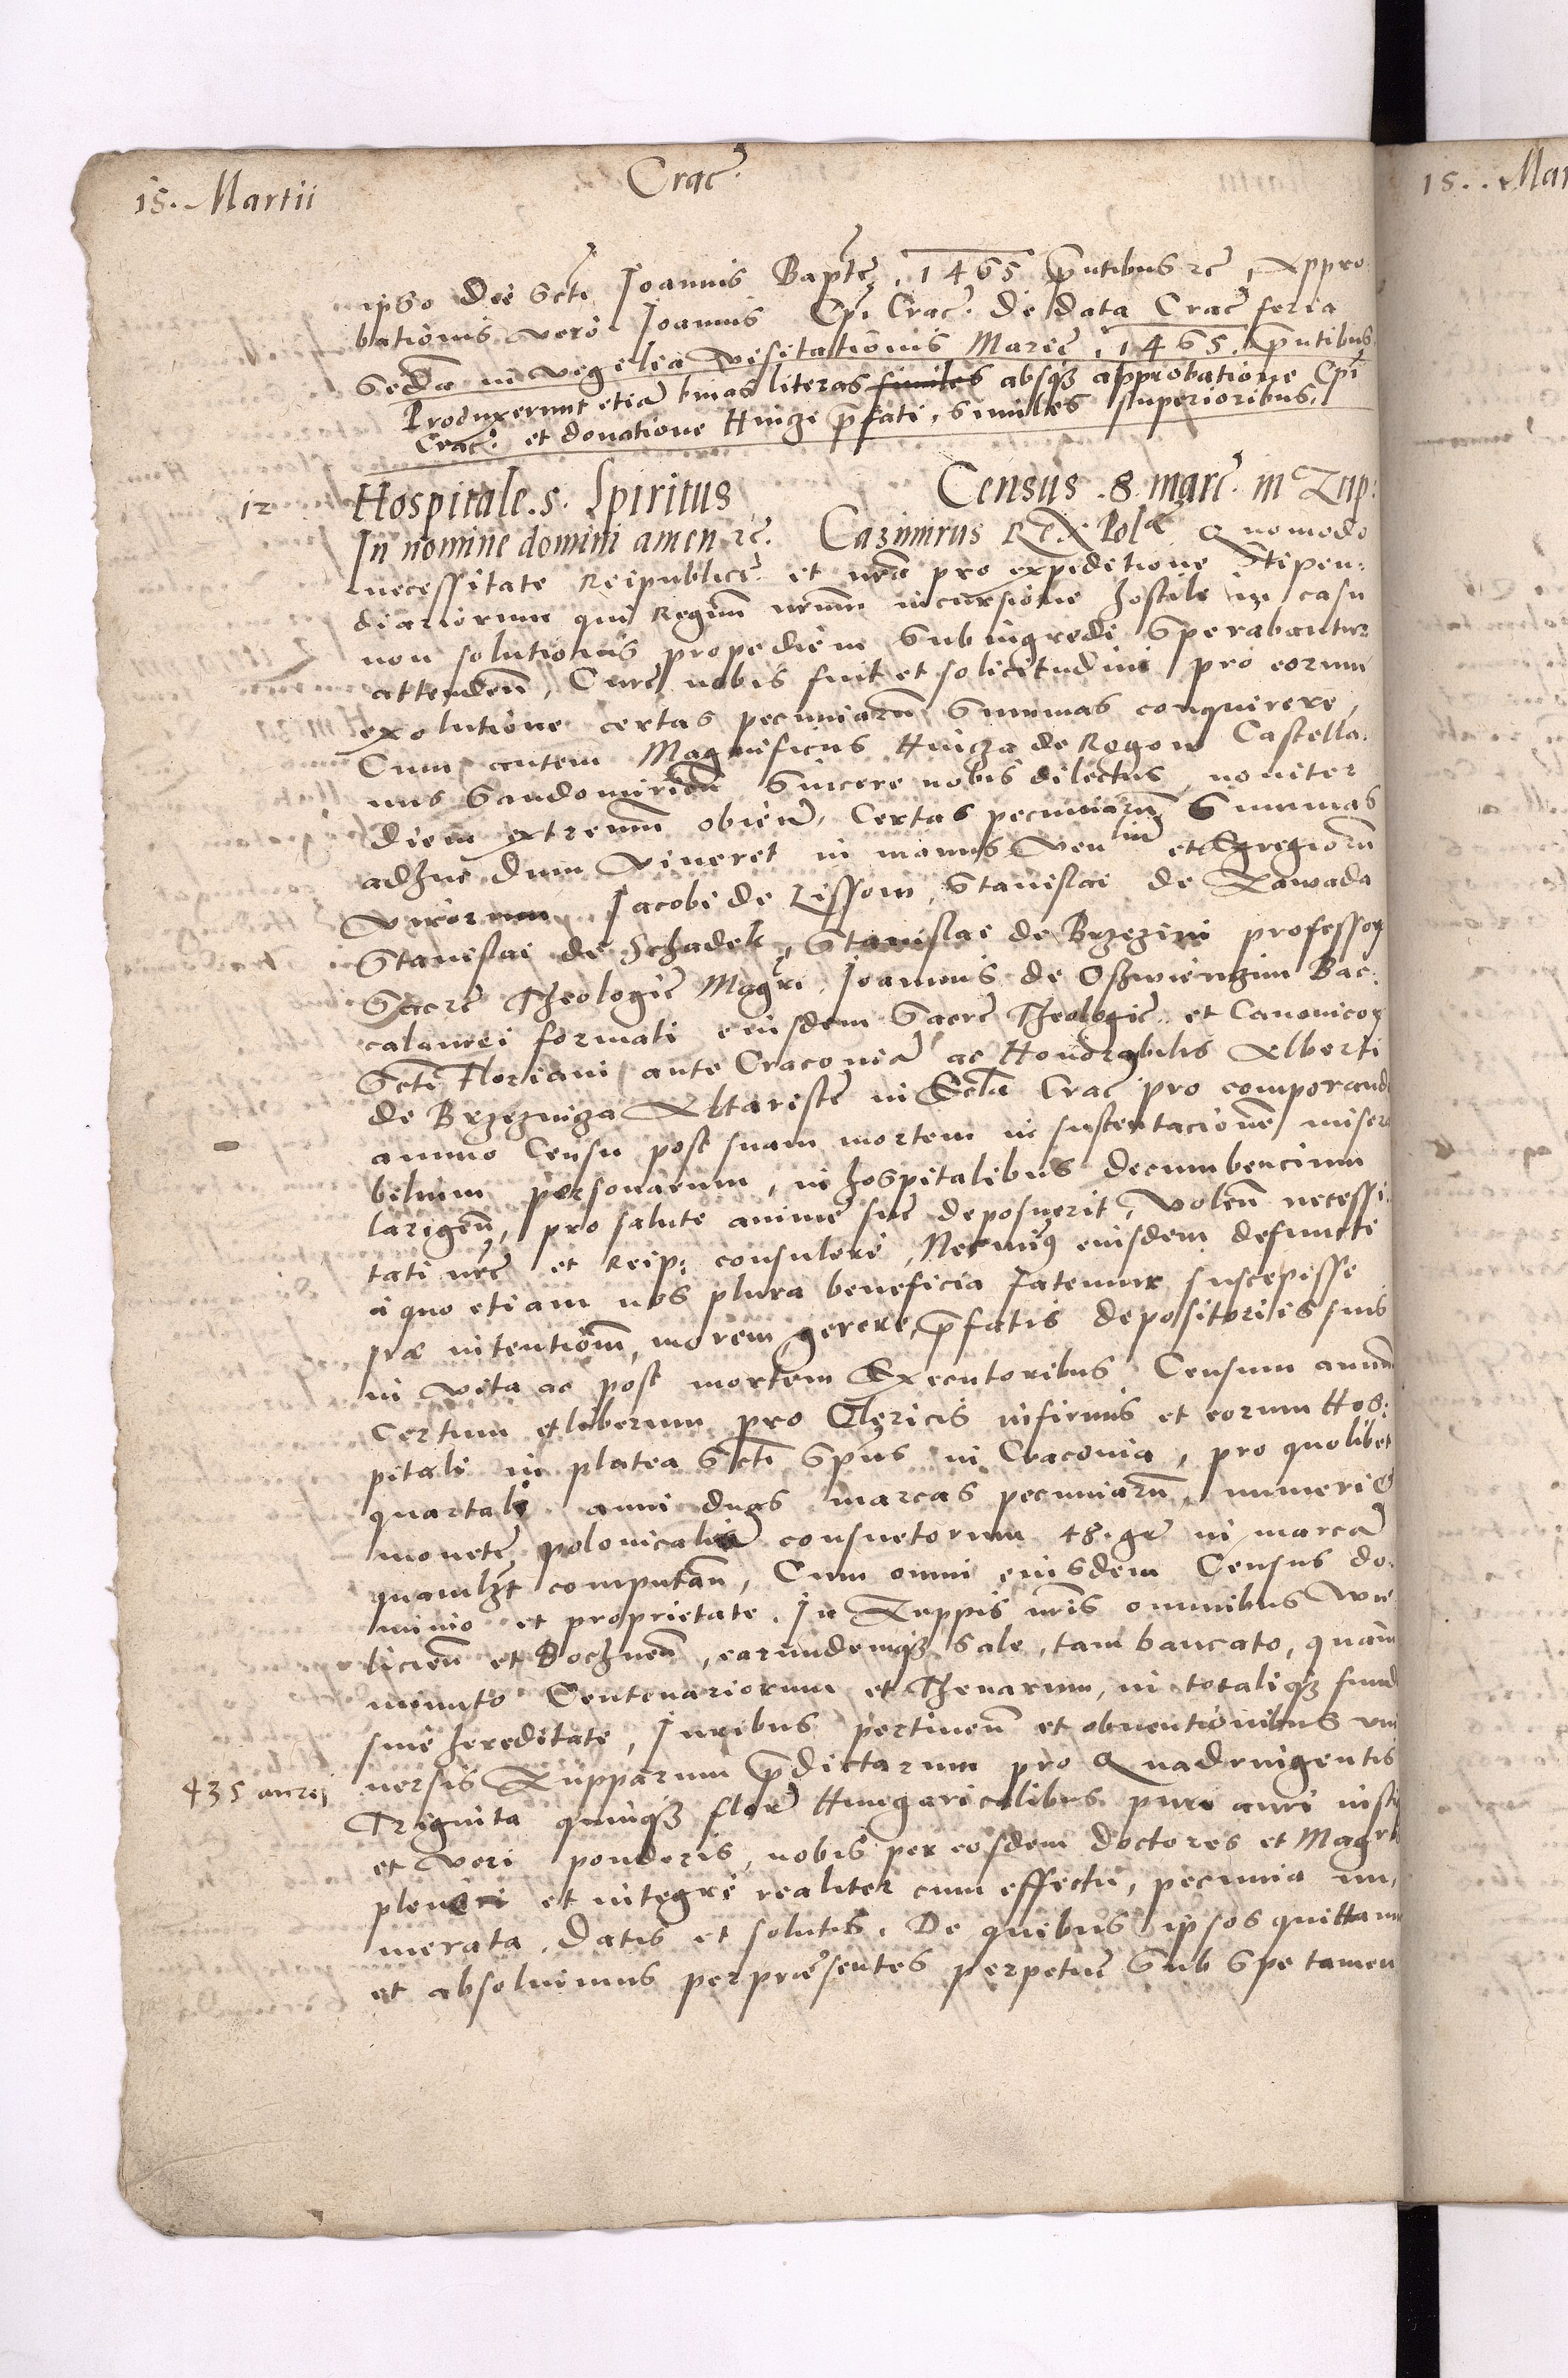 15. Martii
Crac.
ipso die Scti Joannis Baptę. 1465 pntibus etc, Appro
bationis vero Joannis Epi Crac. de data Crac feria
Secda in vegelia visitationis Marię. 1465. pntibus
Produxerunt etiā binas literas similes absqꝫ approbatione Epi
Crac. et donatione Hincze pfati, similes superioribus.
12
Hospitale. s. Spiritus
Census .8. marc. in Zup:
In nomine domini amen etc. Cazimirus Rex Polę Quomodo
necessitate Reipublicę et nra pro expeditione Stipen:
diariorum qui Regnum nrum incursione hostile in casu
non solutionis propediem Subingredi Sperabantur
attenden, Curę nobis fuit et solicitudini pro eorum
exolutione certas pecuniarū Summas conquirere,
Cum autem Magnificus Hincza de Rogow Castella:
nus Sandomirien Sincere nobis dilectus noviter
diem extremum obierit, Certas pecuniarū Summas
adhuc dum viveret in manus Ven^um et Egregiorū
virorum Jacobi de Lissow, Stanislai de Zawada
Stanislai de Schadek, Stanislai de Brzezini professoꝝ
Sacrę Theologię Magri Joannis de Oszwienzim Bac:
calaurei formati eiusdem Sacrę Theologię et Canonicoꝝ
Scti Floriani ante Cracoviā ac Honorabilis Alberti
de Brzezniza Altaristę in Ecla Crac pro comporand
annuo Censu post suam mortem in sustentacionē misera
bilium personarum, in hospitalibus decumbencium
largien, pro salute animę suę deposuerit, Volen necessi:
tati nrę et Reip: consulere, Necminꝰ eiusdem defuncti
a quo etiam nos plura beneficia fatemur suscepisse
pia intentioni, morem gerere, pfatis depositoriis suis
in vita ac post mortem Executoribus Censum annuū
Certum et liberum pro Clericis infirmis et eorum Hos:
pitali in platea Scti Spūs in Cracovia, pro quolibet
quartali anni duas marcas pecuniarū, numeri &
monetę polonicalis consuetorum 48. gr in marcā
quamlꝫt computan, Cum omni eiusdem Census do:
minio et proprietate. In Zuppis nris omnibus Wie
licien et Bochnen, earundemqꝫ Sale, tam bancato, quam
minuto Centenariorum et Thenarum, in totaliqꝫ fund
sive hereditate, Juribus pertinen et obventionibus uni
versis Zupparum pdictarum pro Quadringentis
435 aurej
Triginta quinqꝫ flor Hungaricalibus puri auri iusti
et veri ponderis, nobis per eosdem doctores et Magrū
plenarie et integre realiter cum effectu, pecunia nu,
merata. Datis et solutis. De quibus ipsos quittam
et absolvimus per præsentes perpetuę Sub Spe tamen
15. . Mar